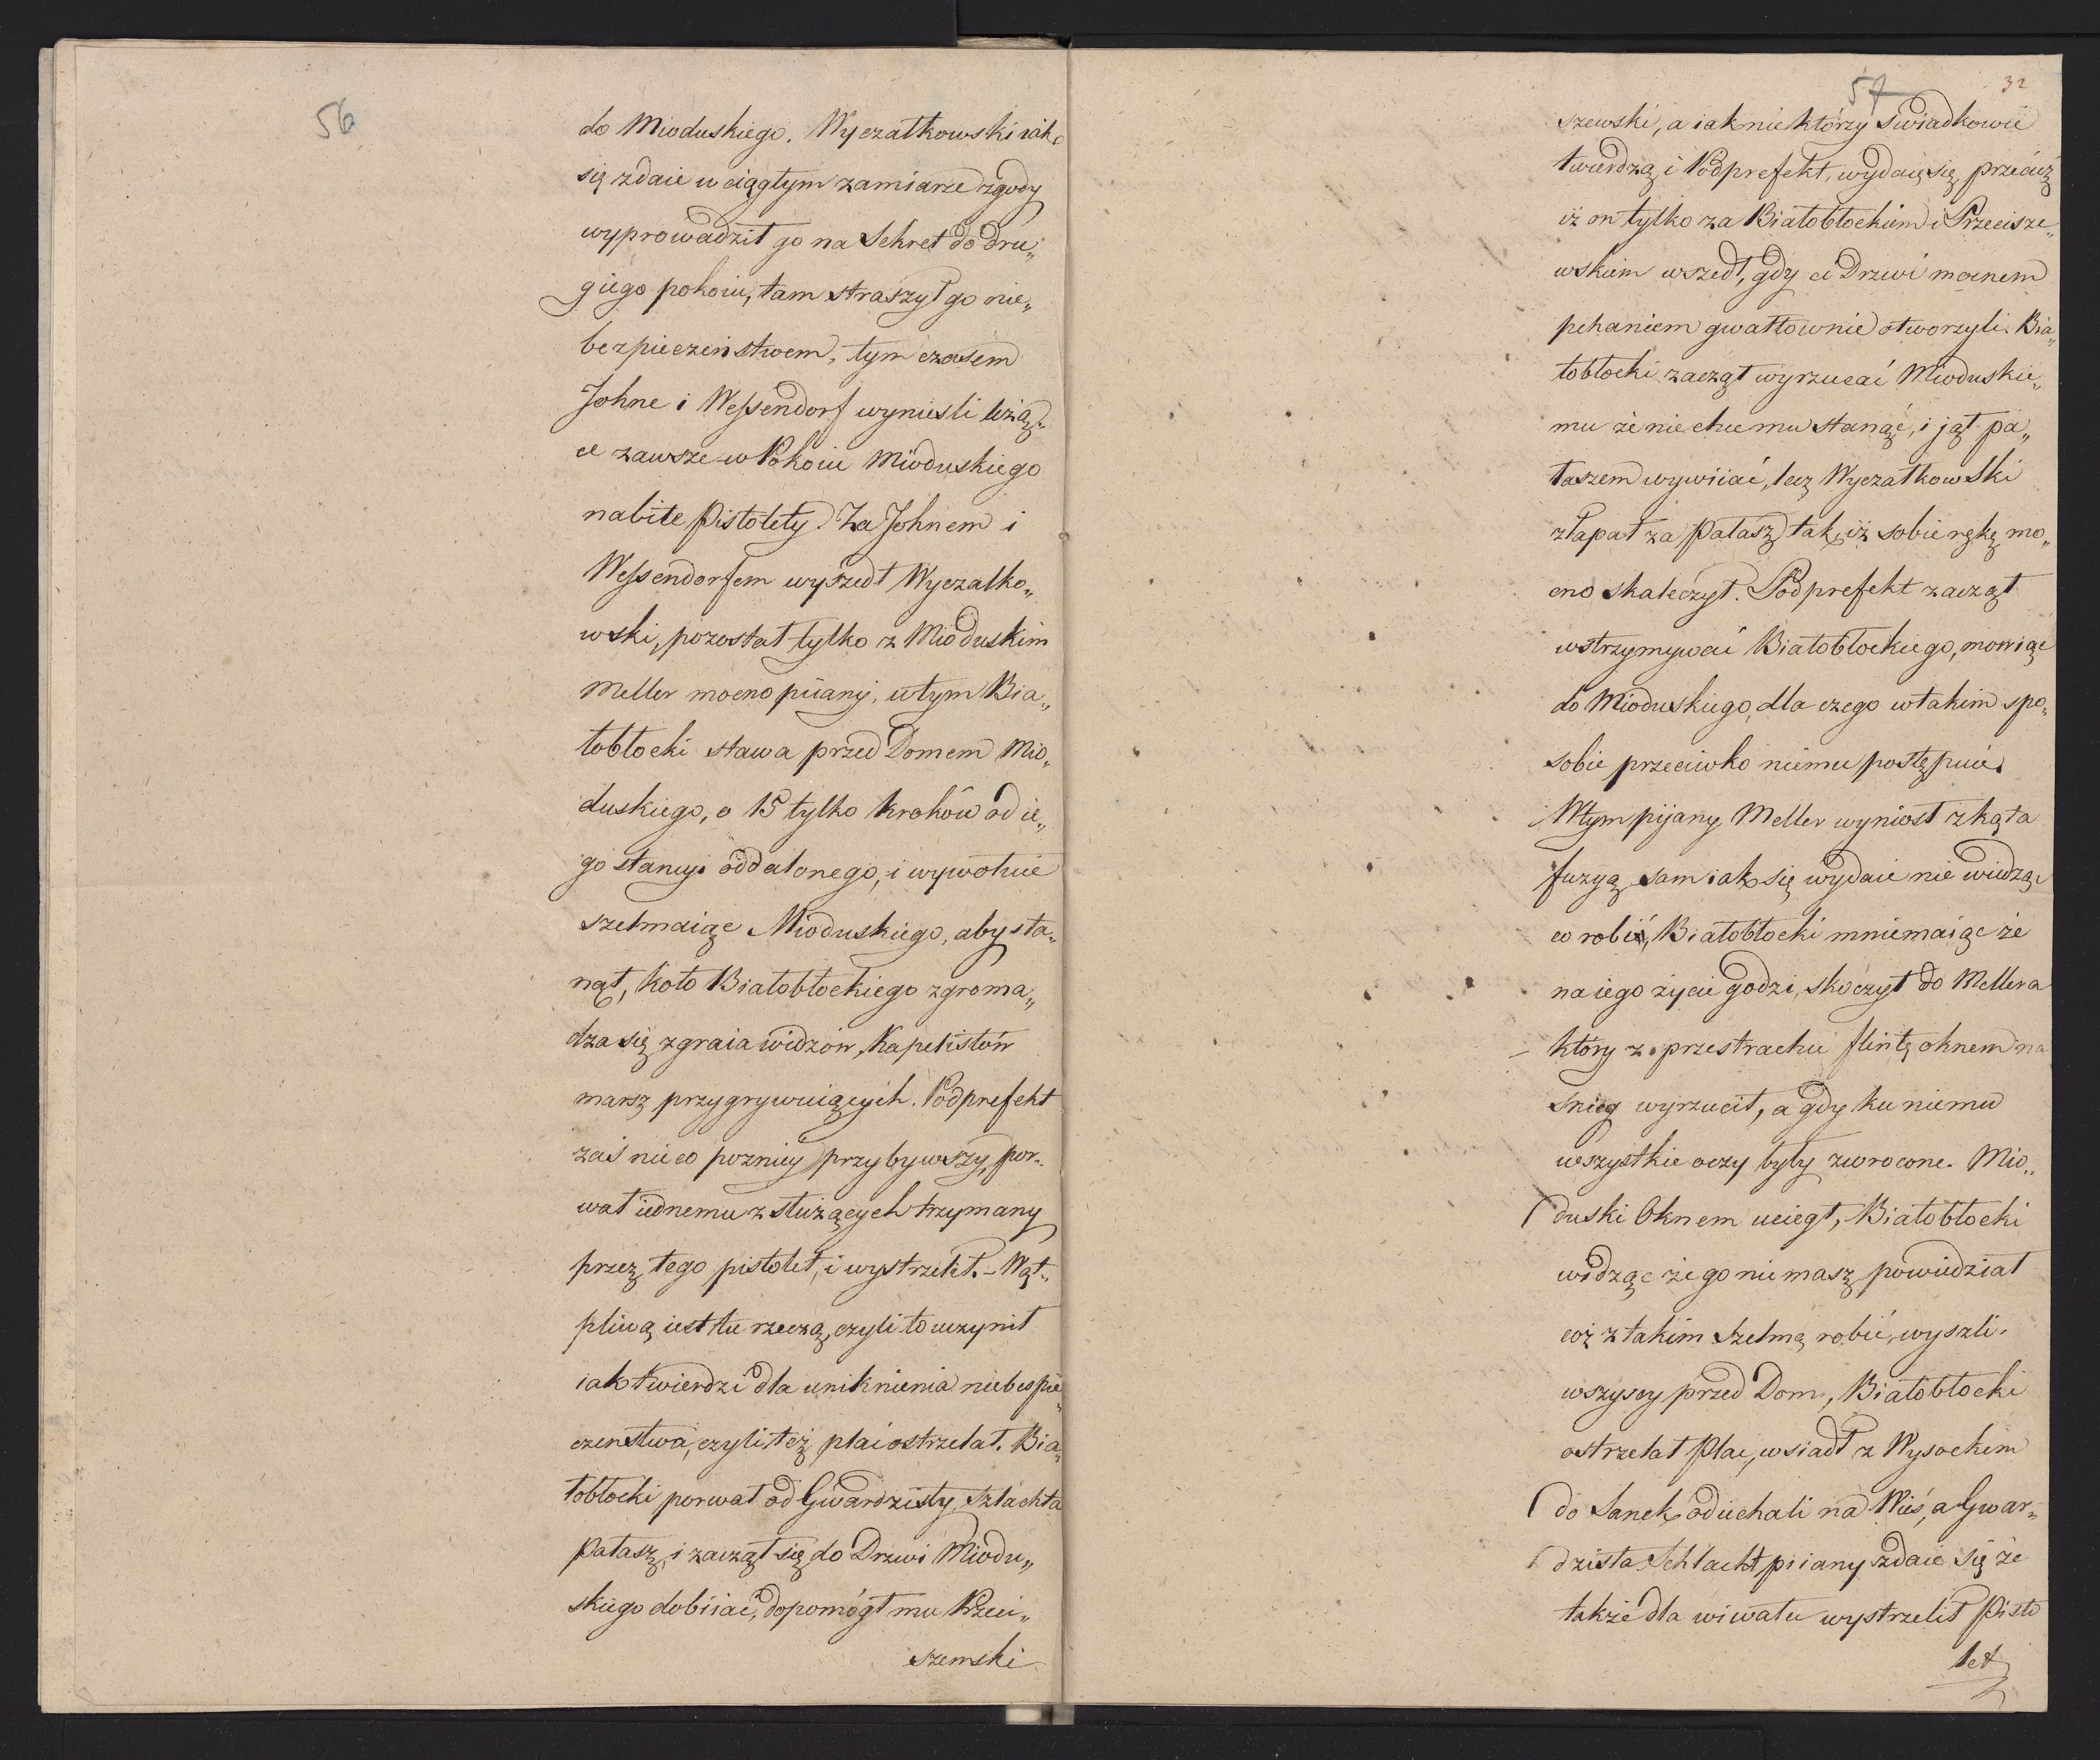 56
do Mioduskiego. Wyczałkowski iak
się zdaie w ciągłym zamiarze zgody
wyprowadził go na Sekret do dru„
giego pokoiu, tam straszył go nie„
bezpieczeństwem, tym czasem
Johne i Wessendorf wynieśli leżą„
ce zawsze w Pokoiu Mioduskiego
nabite Pistolety. Za Johnem i
Wessendorfem wyszedł Wyczałko„
wski, pozostał tylko z Mioduskim
Meller mocno piiany, wtym Bia„
łobłocki stawa przed Domem Mio„
duskiego, o 15 tylko kroków od ie„
go stancyi oddalonego, i wywołuie
szelmaiąc Mioduskiego, aby sta„
nął, koło Białobłockiego zgroma„
dza się zgraia widzów, Kapelistów
marsz przygrywaiących. Podprefekt
zaś nieco pozniey przybywszy, por„
wał iednemu z służących trzymany
przez tego pistolet, i wystrzelił. – Wąt„
pliwą iest tu rzeczą, czyli to uczynił
iak twierdzi dla uniknienia niebespie„
czenstwa, czyli też plac ostrzelał. Bia„
łobłocki porwał od Gwardzisty Szlachta
Pałasz, i zaczął się do Drzwi Miodu„
skiego dobiiać, dopomógł mu Przeci„
szewski
57
32
szewski, a iak niektórzy Swiadkowie
twierdzą i Podprefekt, wydaie się przecież
iż on tylko za Białobłockim i Przecisze„
wskim wszedł, gdy ci Drzwi mocnem
pchaniem gwałtownie otworzyli. Bia„
łobłocki zaczął wyrzucać Mioduskie„
mu że nie chce mu stanąć, i jął pa„
łaszem wywiiać, lecz Wyczałkowski
złapał za Pałasz tak, iż sobie rękę mo„
cno skaleczył. Podprefekt zaczął
wstrzymywać Białobłockiego, mowiąc
do Mioduskiego, dla czego w takim spo„
sobie przeciwko niemu postępuie.
Wtym pijany Meller wyniosł z kąta
fuzyą sam iak się wydaie nie wiedząc
co robić, Białobłocki mniemaiąc że
na iego życie godzi, skoczył do Mellera
który z przestrachu flintę oknem na
snieg wyrzucił, a gdy ku niemu
wszystkie oczy były zwrocone. Mio„
duski Oknem uciegł, Białobłocki
widząc że go nie masz powiedział
coż z takim Szelmą robić, wyszli
wszyscy przed Dom, Białobłocki
ostrzelał Plac, wsiadł z Wysockim
do Sanek odiechali na Wieś, a Gwar„
dzista Schlacht piiany zdaie się że
także dla wiwatu wystrzelił Pisto
let